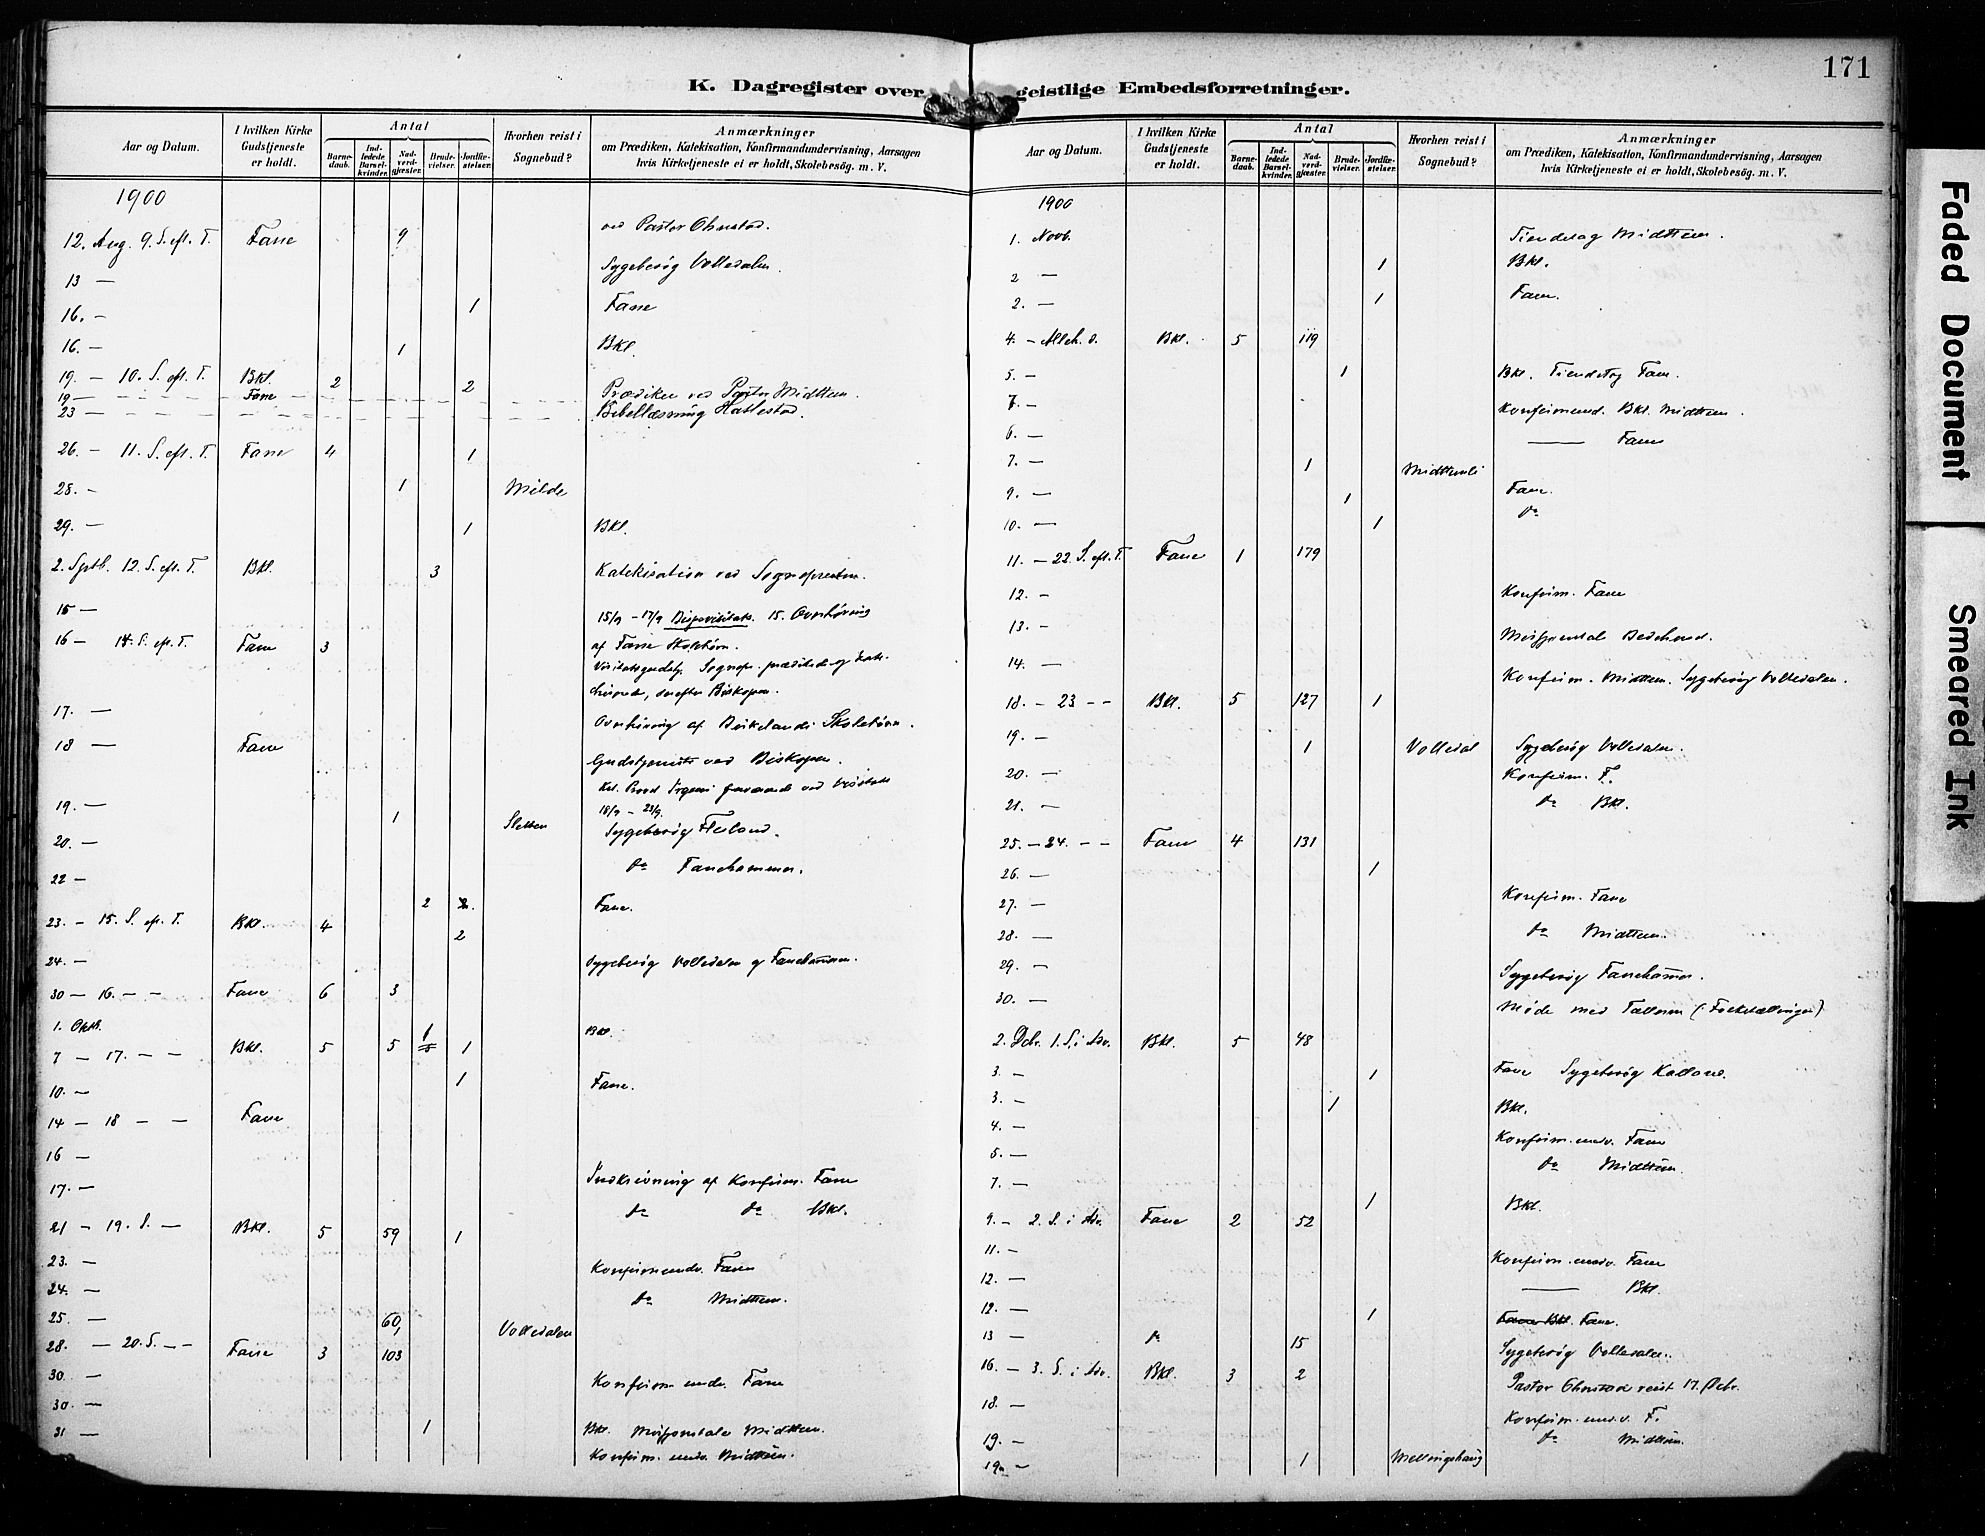 171
K. Dagregister over geistlige Embedsforretninger.
Aar og Datum.
I hvilken Kirke Gudstjeneste er holdt.
Antal
Barnedaab.
Indledede Barselkvinder.
Nadverdgjæster.
Brudevielser.
Jordfæstelser.
Hvorhen reist i Sognebud?
Anmærkninger
om Prædiken, Katekisation, Konfirmandundervisning, Aarsagen
hvis Kirketjeneste ei er holdt, Skolebesøg. m. V.
1900
12. Aug. 9. S. eft. T. Fane 9 ved Pastor Ohnstad.
13 — Sygebesøg Volledalen.
16. - 1 Fane
16. — 1 Bkl.
19. — 10. S. eft. T. Bkl. 2 2
19 — Fane Prædiken ved Pastor Midttun.
23 — Bibellæsning Hatlestad.
26. - 11. S. eft. T. Fane 4 1
28. - 1 Milde
29. — 1 Bkl.
2. Sptb. 12. S. eft. T. Bkl. 3 Katekisation ved Sognepresten.
15 — 15/9 - 17/9 Bispevisitats. 15. Overhøring
af Fane Skolebørn.
16 — 14. S. eft. T. Fane 3
derefter Biskopen.
17. — Overhøring af Birkelands Skolebørn.
18 — Fane Gudstjeneste ved Biskopen.
18/9 - 23/9.
19. — 1 Sletten
20. — Sygebesøg Flesland.
22 — do Fanehammer.
2 2. Fane.
23. - 15. S. eft. T. Bkl. 4 2
24. — Sygebesøg Volledalen og Fanehammern.
30 — 16. - - Fane 6 3
1. Oktb. 1 Bkl.
7 — 17. — — Bkl. 5 5 1
10. — 1 Fane.
14 — 18 — — Fane
16 — Indskrivning af Konfirm. Fane
17. — do do Bkl.
21 — 19. S. — Bkl. 5 59 1
23. — Konfirmundv. Fane
24. — do Midttun.
25. — 60, Volledalen
28. — 20. S. — — Fane 3 103
30 — Konfirm undv. Fane
30. —
31 — 1 Bkl. Midttun.
Konfirm. undv. Midttun.
Aar og Datum.
I hvilken Kirke Gudstjeneste er holdt.
Antal
Barnedaab.
Indledede Barselkvinder.
Nadverdgjæster.
Brudevielser.
Jordfæstelser.
Hvorhen reist i Sognebud?
Anmærkninger
om Prædiken, Katekisation, Konfirmandundervisning, Aarsagen
hvis Kirketjeneste ei er holdt, Skolebesøg. m. V.
1900
1. Novb. Tiendetag Midttun.
2 — 1 Bkl.
2. — 1 Fane.
4. - Alleh. d. Bkl. 5 119
5. — 1 Bkl. Tiendetag Fane.
7. — Konfirmund. Bkl. Midttun.
6. — —— Fane
7. — 1 Midttunli
9. — 1 Fane.
10. — 1 do
11. — 22. S. eft. T. Fane 1 179
12. — Konfirm. Fane
13. —
14. — Konfirm. Midttun. Sygebesøg Volledalen.
18. - 23 - - Bkl. 5 127 1
19. — 1 Volledal Sygebesøg Volledalen.
20. — Konfirm. F.
21. — do Bkl.
25. - 24. - - Fane 4 131
26. — 1
27. — Konfirm. Fane
28. — do Midttun.
29. — Sygebesøg Fanehammer.
30. — Møde med Tællerne (: Folketællingen)
2. Dcbr. 1. S. i Adv. Bkl. 5 48
3. — 1 Fane Sygebesøg
3. — 1 Bkl.
4. — Konfirm. undv. Fane
5. — do Midttun.
7. — 1 Bkl.
9. - 2. S. i Adv. Fane 2 52
11. — Konfirm. undv. Fane
12. — —— Bkl.
12. — 1 Fane Bkl. Fane.
13 — do 15 Sygebesøg Volledalen.
16. — 3. S. i Adv. Bkl. 3 2 Pastor Ohnstad reist 17. Dcbr.
18. — Konfirm. undv. F.
19. — do Midttun.
19. — 1 Mellingshaug
Faded Document
Smeared Ink